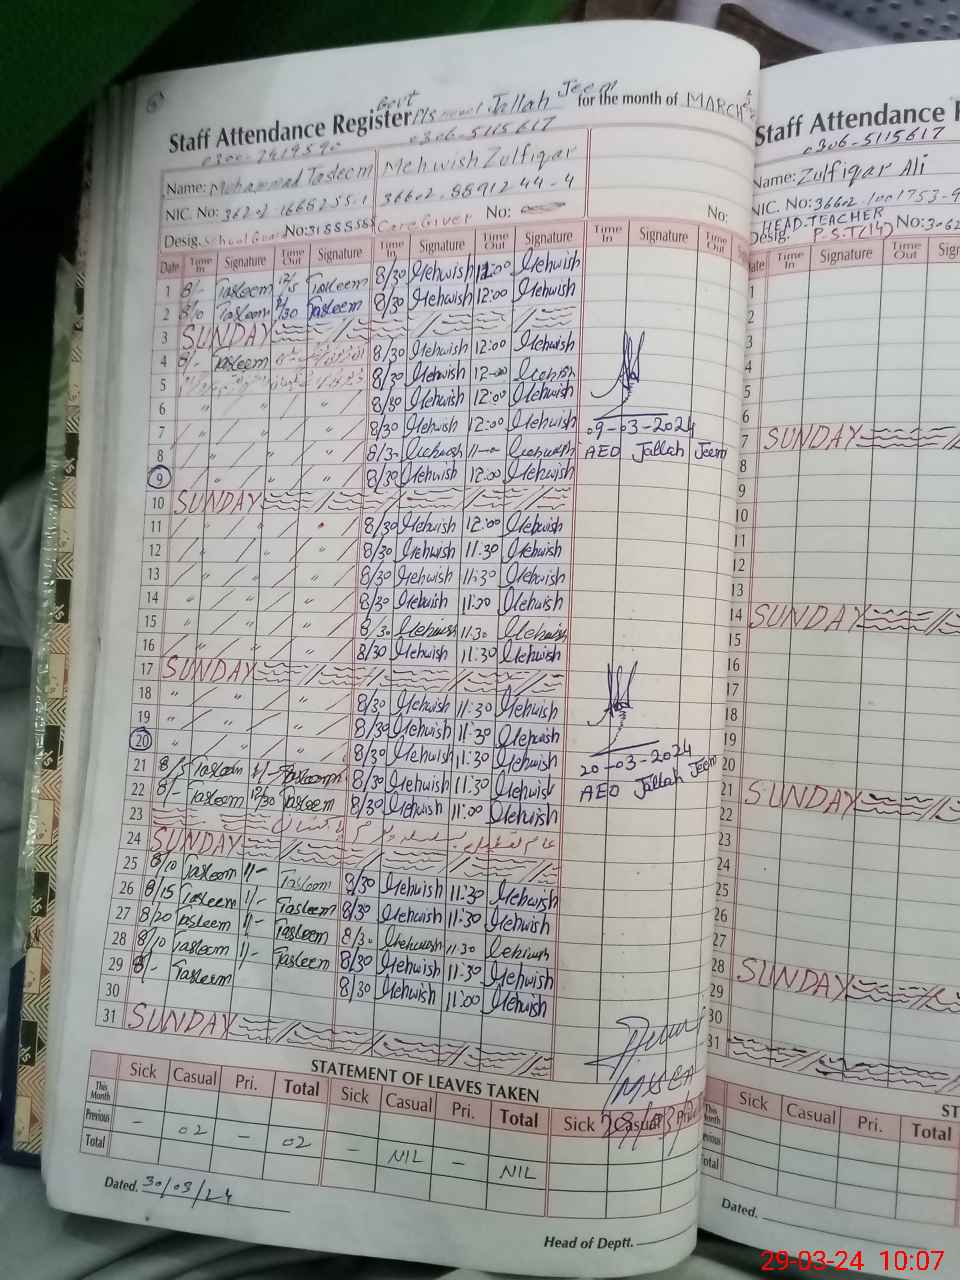 Govt
Staff Attendance Register P/s Jallah Jeem for the month of MARCH
0306-5115617
Name: Mohammad Tasleem Mehwish Zulfiqar
NIC. No: 36602.8891244-4
Desig. School Guard No: 3188558 Care Giver No: No:
Date Time In Signature Time Out Signature Time In Signature Time Out Signature Time In Signature Time Out
1 8/- Tasleem 12/15 Tasleem 8/30 Mehwish 12:00 Mehwish
2 8/10 Tasleem Tasleem 8/30 Mehwish 12:00 Mehwish
3 SUNDAY
4 8/- Tasleem 8/30 Mehwish 12:00 Mehwish
5 8/30 Mehwish 12:00 Mehwish
6 " " " 8/30 Mehwish 12:00 Mehwish
7 " " " 8/30 Mehwish 12:00 Mehwish
09-03-2024
8 " " " 8/30 Mehwish 11:00 Mehwish
AEO Jallah Jeem
9 " " " 8/30 Mehwish 12:00 Mehwish
10 SUNDAY
11 8/30 Mehwish 12:00 Mehwish
12 " " " 8/30 Mehwish 11:30 Mehwish
13 " " " 8/30 Mehwish 11:30 Mehwish
14 " " " 8/30 Mehwish 11:30 Mehwish
15 " " " 8/30 Mehwish 11:30 Mehwish
16 " " " 8/30 Mehwish 11:30 Mehwish
17 SUNDAY
18 " " " 8/30 Mehwish 11:30 Mehwish
19 " " " 8/30 Mehwish 11:30 Mehwish
20 " " " 8/30 Mehwish 11:30 Mehwish
20-03-2024
21 8/5 Tasleem 1/- Tasleem 8/30 Mehwish 11:30 Mehwish
AEO Jallah Jeem
22 8/- Tasleem 12/30 Tasleem 8/30 Mehwish 11:00 Mehwish
23 عام تعطیل بسلسلہ یوم پاکستان
24 SUNDAY
25 8/10 Tasleem 1/- Tasleem 8/30 Mehwish 11:30 Mehwish
26 8/15 Tasleem 1/- Tasleem 8/30 Mehwish 11:30 Mehwish
27 8/20 Tasleem 1/- Tasleem 8/30 Mehwish 11:30 Mehwish
28 8/10 Tasleem 1/- Tasleem 8/30 Mehwish 11:30 Mehwish
29 8/- Tasleem 8/30 Mehwish 11:00 Mehwish
30
31 SUNDAY
STATEMENT OF LEAVES TAKEN
Sick Casual Pri. Total Sick Casual Pri. Total Sick Casual
This Month
Previous - 02 - 02 - NIL - NIL
Total
Dated. 30/03/24
Head of Deptt.
Staff Attendance
0306-5115617
Name: Zulfiqar Ali
NIC. No: 36602.1001753-9
HEAD-TEACHER
Desig. P.S.T(14) No:
Date Time In Signature Time Out
1
2
3
4
5
6
7 SUNDAY
8
9
10
11
12
13
14 SUNDAY
15
16
17
18
19
20
21 SUNDAY
22
23
24
25
26
27
28 SUNDAY
29
30
31
Sick Casual Pri. Total
This Month
Previous
Total
Dated.
29-03-24 10:07